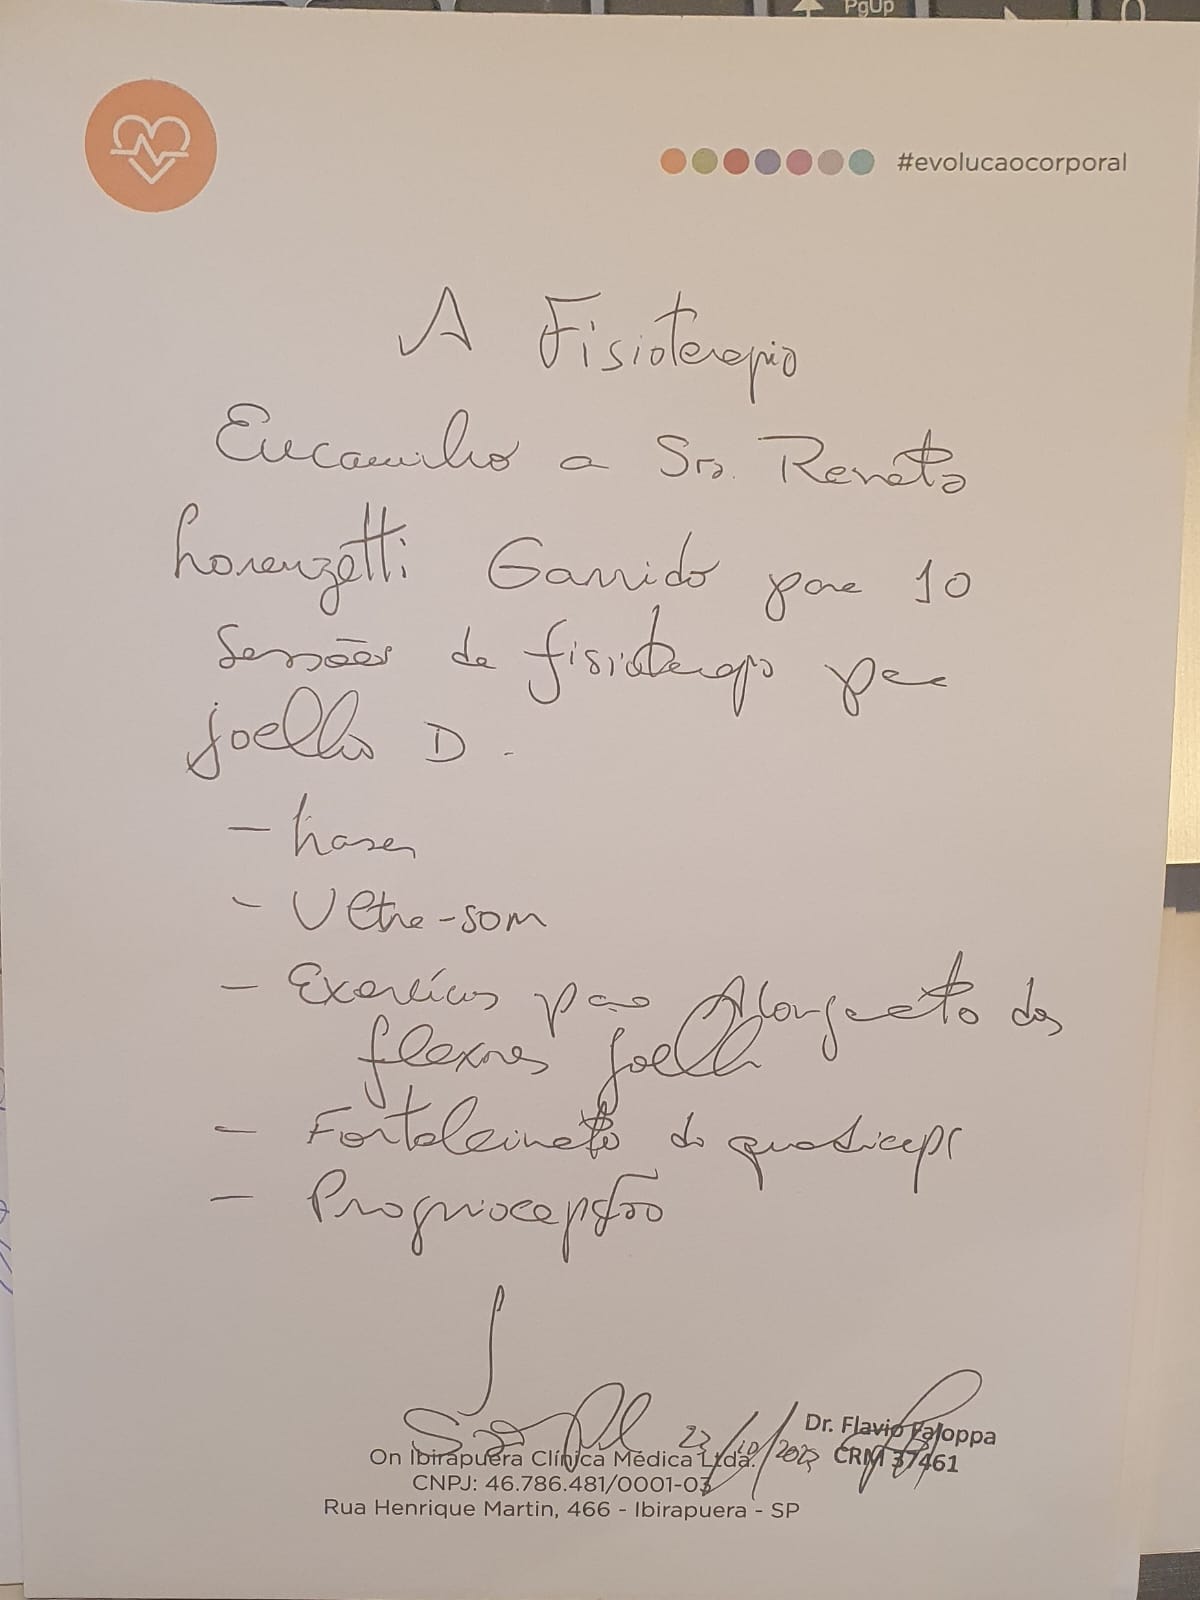 PgUp
#evolucaocorporal
A Fisioterapia
Encaminho a Sra. Renata
Lorenzetti Garrido para 10
Sessões de fisioterapia para
joelho D.
- Laser
- Ultra-som
- Exercícios para Alongamento dos
flexores joelho
- Fortalecimento do quadriceps
- Propriocepção
São Paulo 23/10/2023
Dr. Flavio Faloppa
CRM 37461
On Ibirapuera Clínica Médica Ltda.
CNPJ: 46.786.481/0001-03
Rua Henrique Martin, 466 - Ibirapuera - SP